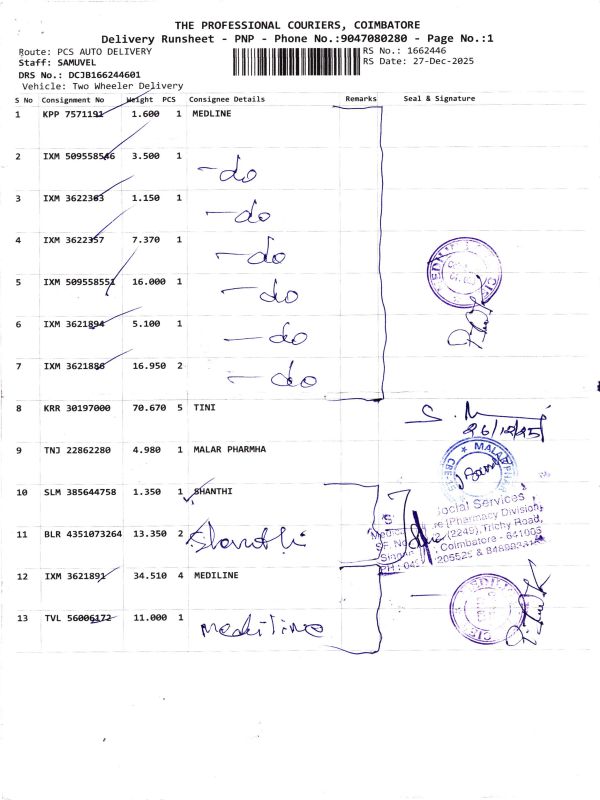 THE PROFESSIONAL COURIERS, COIMBATORE
Delivery Runsheet - PNP - Phone No.:9047080280 - Page No.:1
Route: PCS AUTO DELIVERY RS No.: 1662446
Staff: SAMUVEL RS Date: 27-Dec-2025
DRS No.: DCJB166244601
Vehicle: Two Wheeler Delivery
S No Consignment No Weight PCS Consignee Details Remarks Seal & Signature
1 KPP 7571191 1.600 1 MEDLINE
2 IXM 509558546 3.500 1 -do
3 IXM 3622363 1.150 1 -do
4 IXM 3622357 7.370 1 -do
5 IXM 509558551 16.000 1 -do
6 IXM 3621894 5.100 1 -do
7 IXM 3621886 16.950 2 -do
8 KRR 30197000 70.670 5 TINI
26/12/25
9 TNJ 22862280 4.980 1 MALAR PHARMHA
MALAR
10 SLM 385644758 1.350 1 SHANTHI
ocial Services
(Pharmacy Division)
(2249), Trichy Road,
Coimbatore - 641005
205525 &
11 BLR 4351073264 13.350 2 Shanthi
12 IXM 3621891 34.510 4 MEDILINE
13 TVL 56006172 11.000 1 Mediline